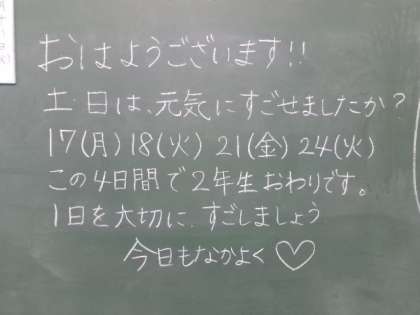 おはようございます!!
土・日は、元気にすごせましたか?
17(月)18(火) 21(金) 24(火)
この4日間で2年生おわりです。
1日を大切に、すごしましょう
今日もなかよく♡